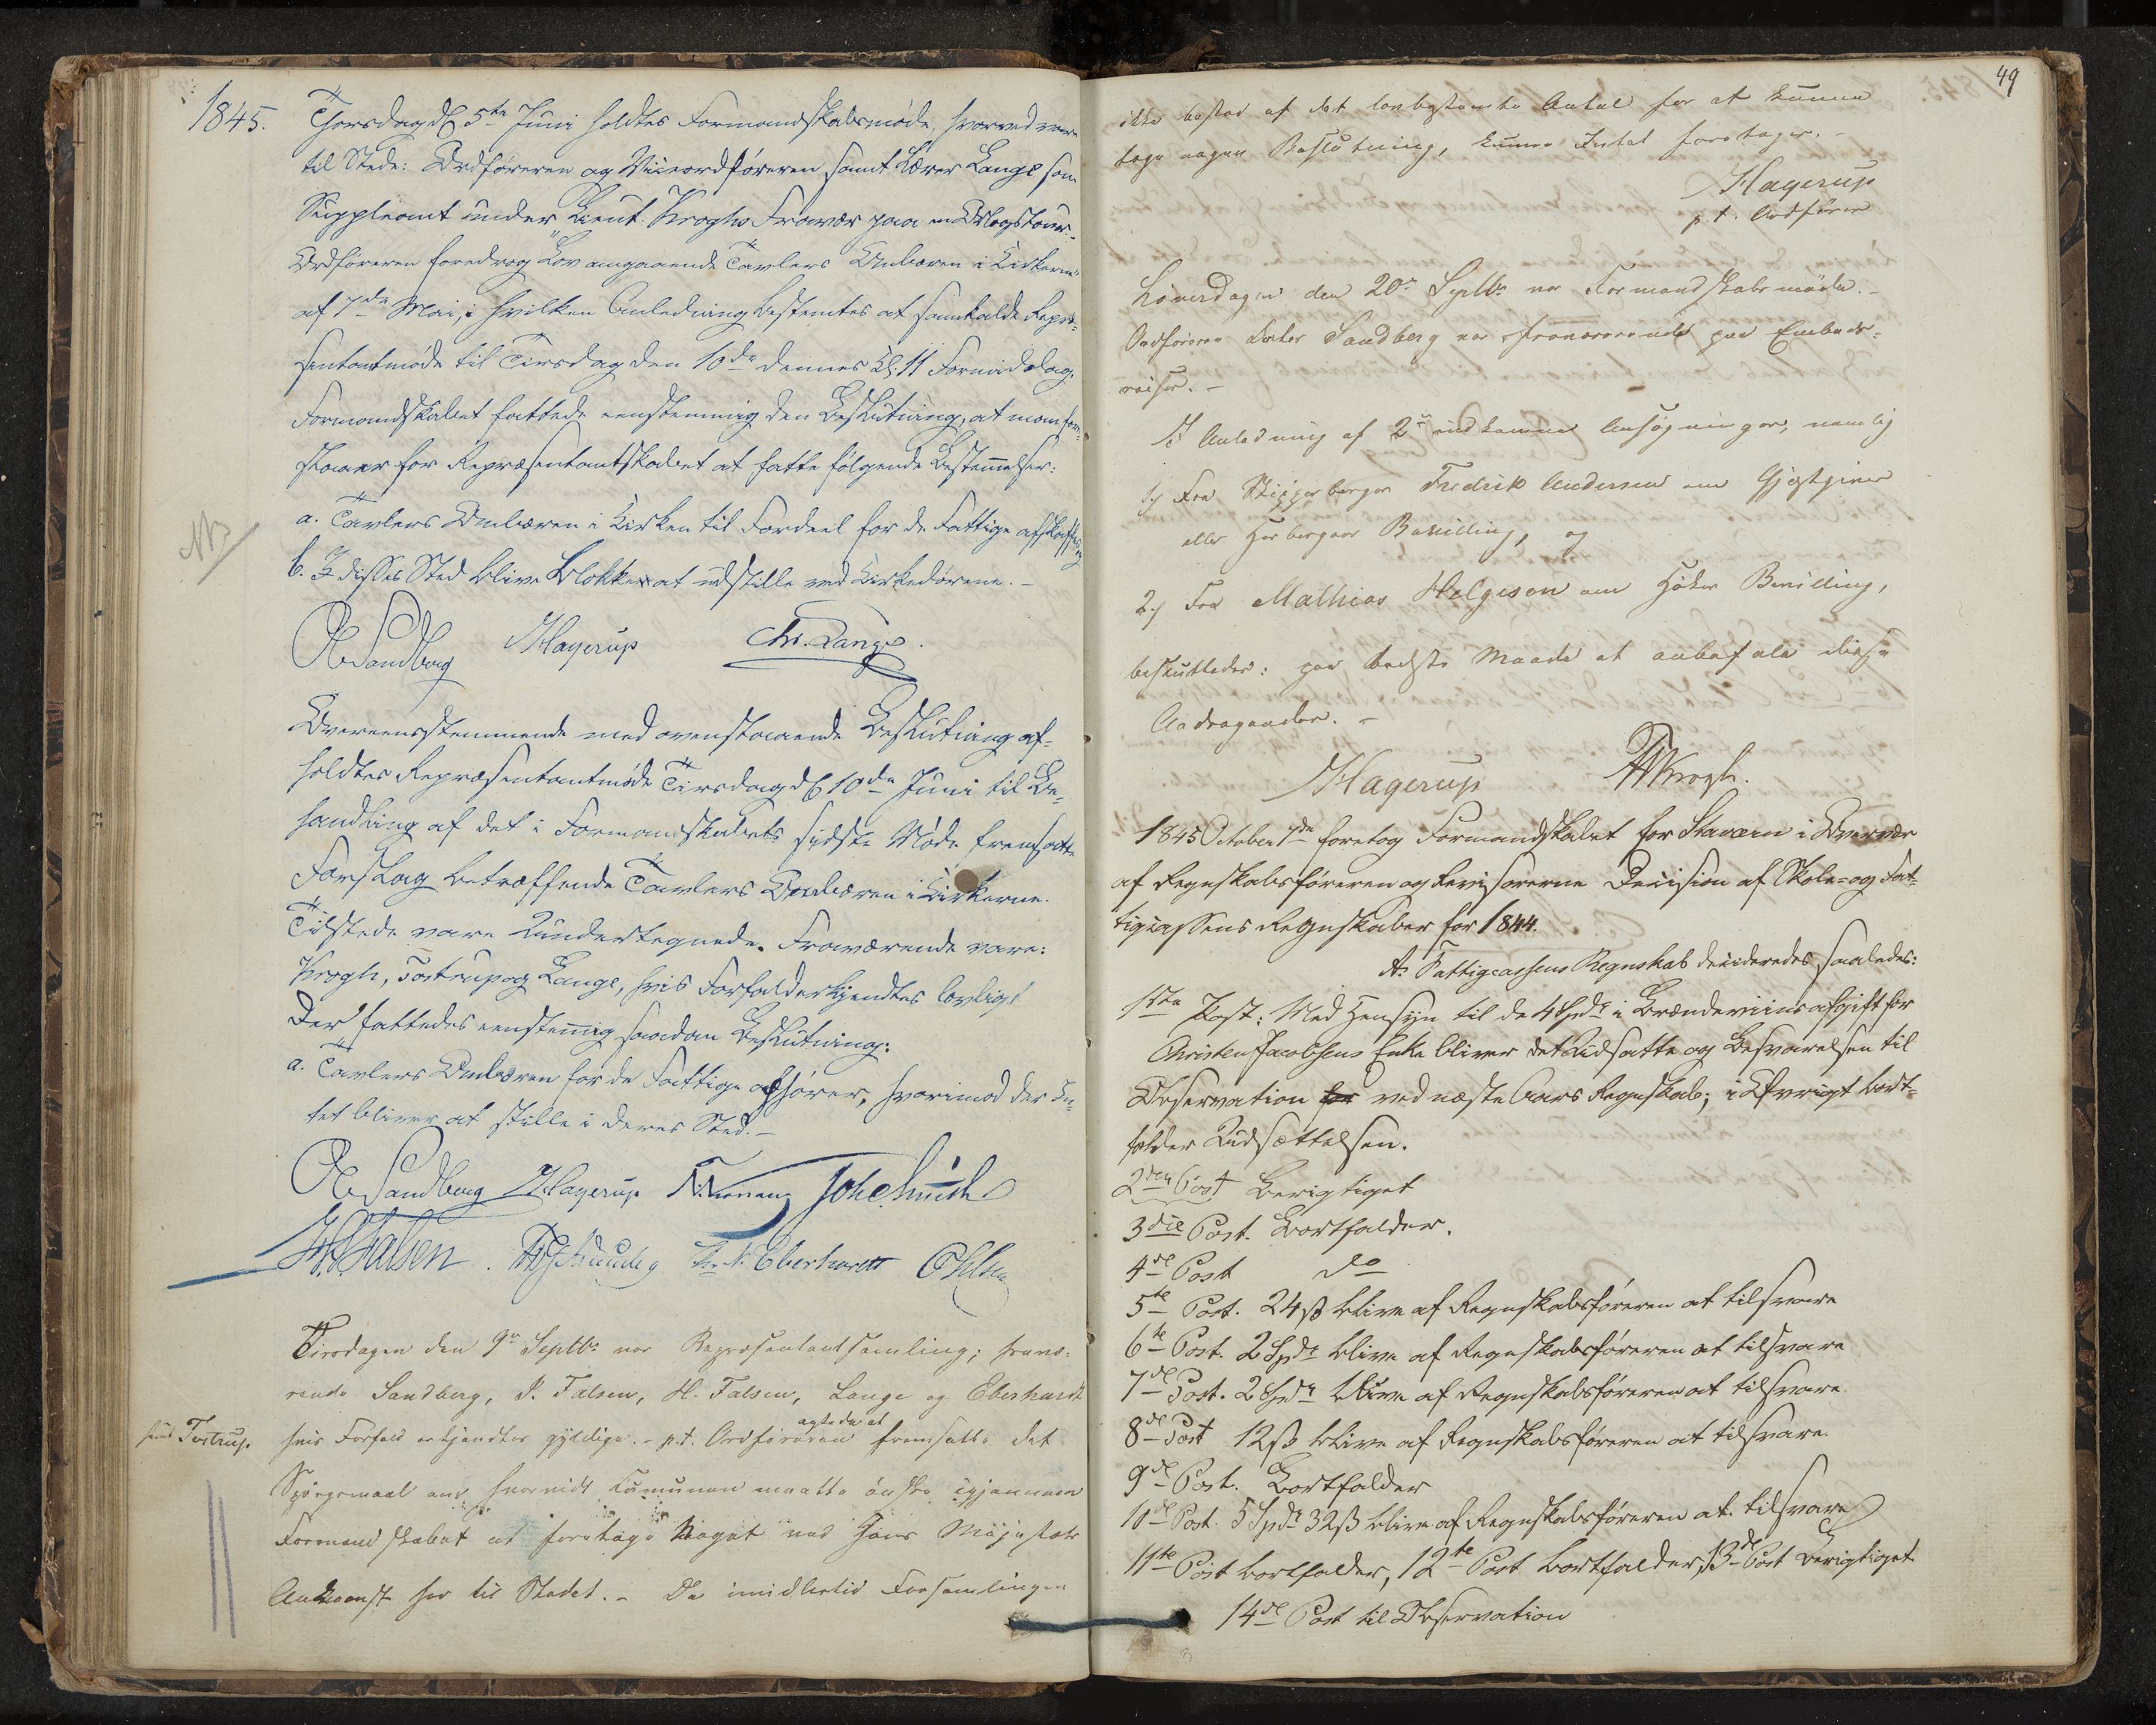 1845.
Thorsdag d. 5te Juni holdtes Formandskabsmøde, hvorved vare
til Stede: Ordføreren og Viceordføreren samt Lærer Lange som
Suppleant under Lieut. Kroghs Fravær paa en Orlogstour.-
Ordføreren foredrog "Lov angaaende Tavlers Ombæren i Kirkerne"
af 7de Mai, i hvilken Anledning bestemtes at sammkalde Repræ-
sentantmøde til Tirsdag den 10de dennes Kl. 11 Formiddag.
Formandskabet fattede eenstemmig den Beslutning, at man fore-
slaaer for Repræsentantskabet at fatte følgende Bestemmelser:
a. Tavlers Ombæren i Kirken til Fordeel for de Fattige afskaffes og
NB
b. I disses Sted blive Blokker at udstille ved Kirkedørene. -
Ole Sandberg Hagerup Chr. Lange.
Overeensstemmende med ovenstaaende Beslutning af-
holdtes Repræsentantmøde Tirsdag d. 10de Juni til Be-
handling af det i Formandskabets sidste Møde fremsatte
Forslag betræffende Tavlers Ombæren i Kirkerne.
Tilstede vare Undertegnede. Fraværende vare:
Krogh, Tostrup og Lange, hvis Forfald erkjendtes lovligt
Der fattedes eenstemmig saadan Beslutning:
a. Tavlers Ombæren for de Fattige ophører, hvorimod der In-
tet bliver at stille i deres Sted. -
Ole Sandberg Hagerup Joh. Schmidt
Falsen Eberhardt Ohlsen
Tirsdagen den 9de Septbr var Repræsentantsamling; fravæ-
rende Sandberg, J. Falsen, H. Falsen, Lange og Eberhardt
samt Tostrup.
hvis Forfald erkjendtes gyldige. - p.t. Ordføreren agtede at fremsatte det
Spørgsmaal om hvorvidt Kumunen maatte ønske igjennem
Formandskabet at foretage Noget ved Hans Majestæts
Ankomst her til Stedet. - Da imidlertid Forsamlingen
49
ikke bestod af det lovbestemte Antal for at kunne
tage nogen Beslutning, kunne Intet foretages. -
Hagerup
p.t. Ordfører
Løverdagen den 20de Septbr var Formandskabsmøde. -
Ordføreren Doktor Sandberg var fraværende paa Embeds-
reiser. -
I Anledning af 2de indkomne Ansøgninger, nemlig
1.) Fra Skipperborger Fredrik Andersen om Gjæstgiver
eller Herbergeer Bevilling, og
2.) Fra Mathias Helgesen om Høker Bevilling,
besluttedes: paa bedste Maade at anbefale disse
Andragender. -
Hagerup Krogh.
1845 October 7de foretog Formandskabet for Stavern i Overvær
af Regnskabsføreren og Revisorerne Decision af Skole- og Fat-
tigcassens Regnskaber for 1844.
A. Fattigcassens Regnskab decideredes saaledes:
1ste Post: Med Hensyn til de 4 Spdr i Brændeviinsafgift for
Christen Jacobsens Enke bliver det Udsatte og Besvarelsen til
Observation for ved næste Aars Regnskab; i Øvrigt bort-
falder Udsættelsen.
2den Post Berigtiget
3die Post. Bortfalder.
4de Post do
5te Post. 24 ß blive af Regnskabsføreren at tilsvare
6te Post. 2 Spdr blive af Regnskabsføreren at tilsvare
7de Post. 2 Spdr blive af Regnskabsføreren at tilsvare.
8de Post 12 ß blive af Regnskabsføreren at tilsvare.
9de Post. Bortfalder
10de Post. 5 Spdr 32 ß blive af Regnskabsføreren at tilsvare
11te Post bortfalder, 12te Post bortfalder, 13de Post Berigtiget.
14de Post til Observation